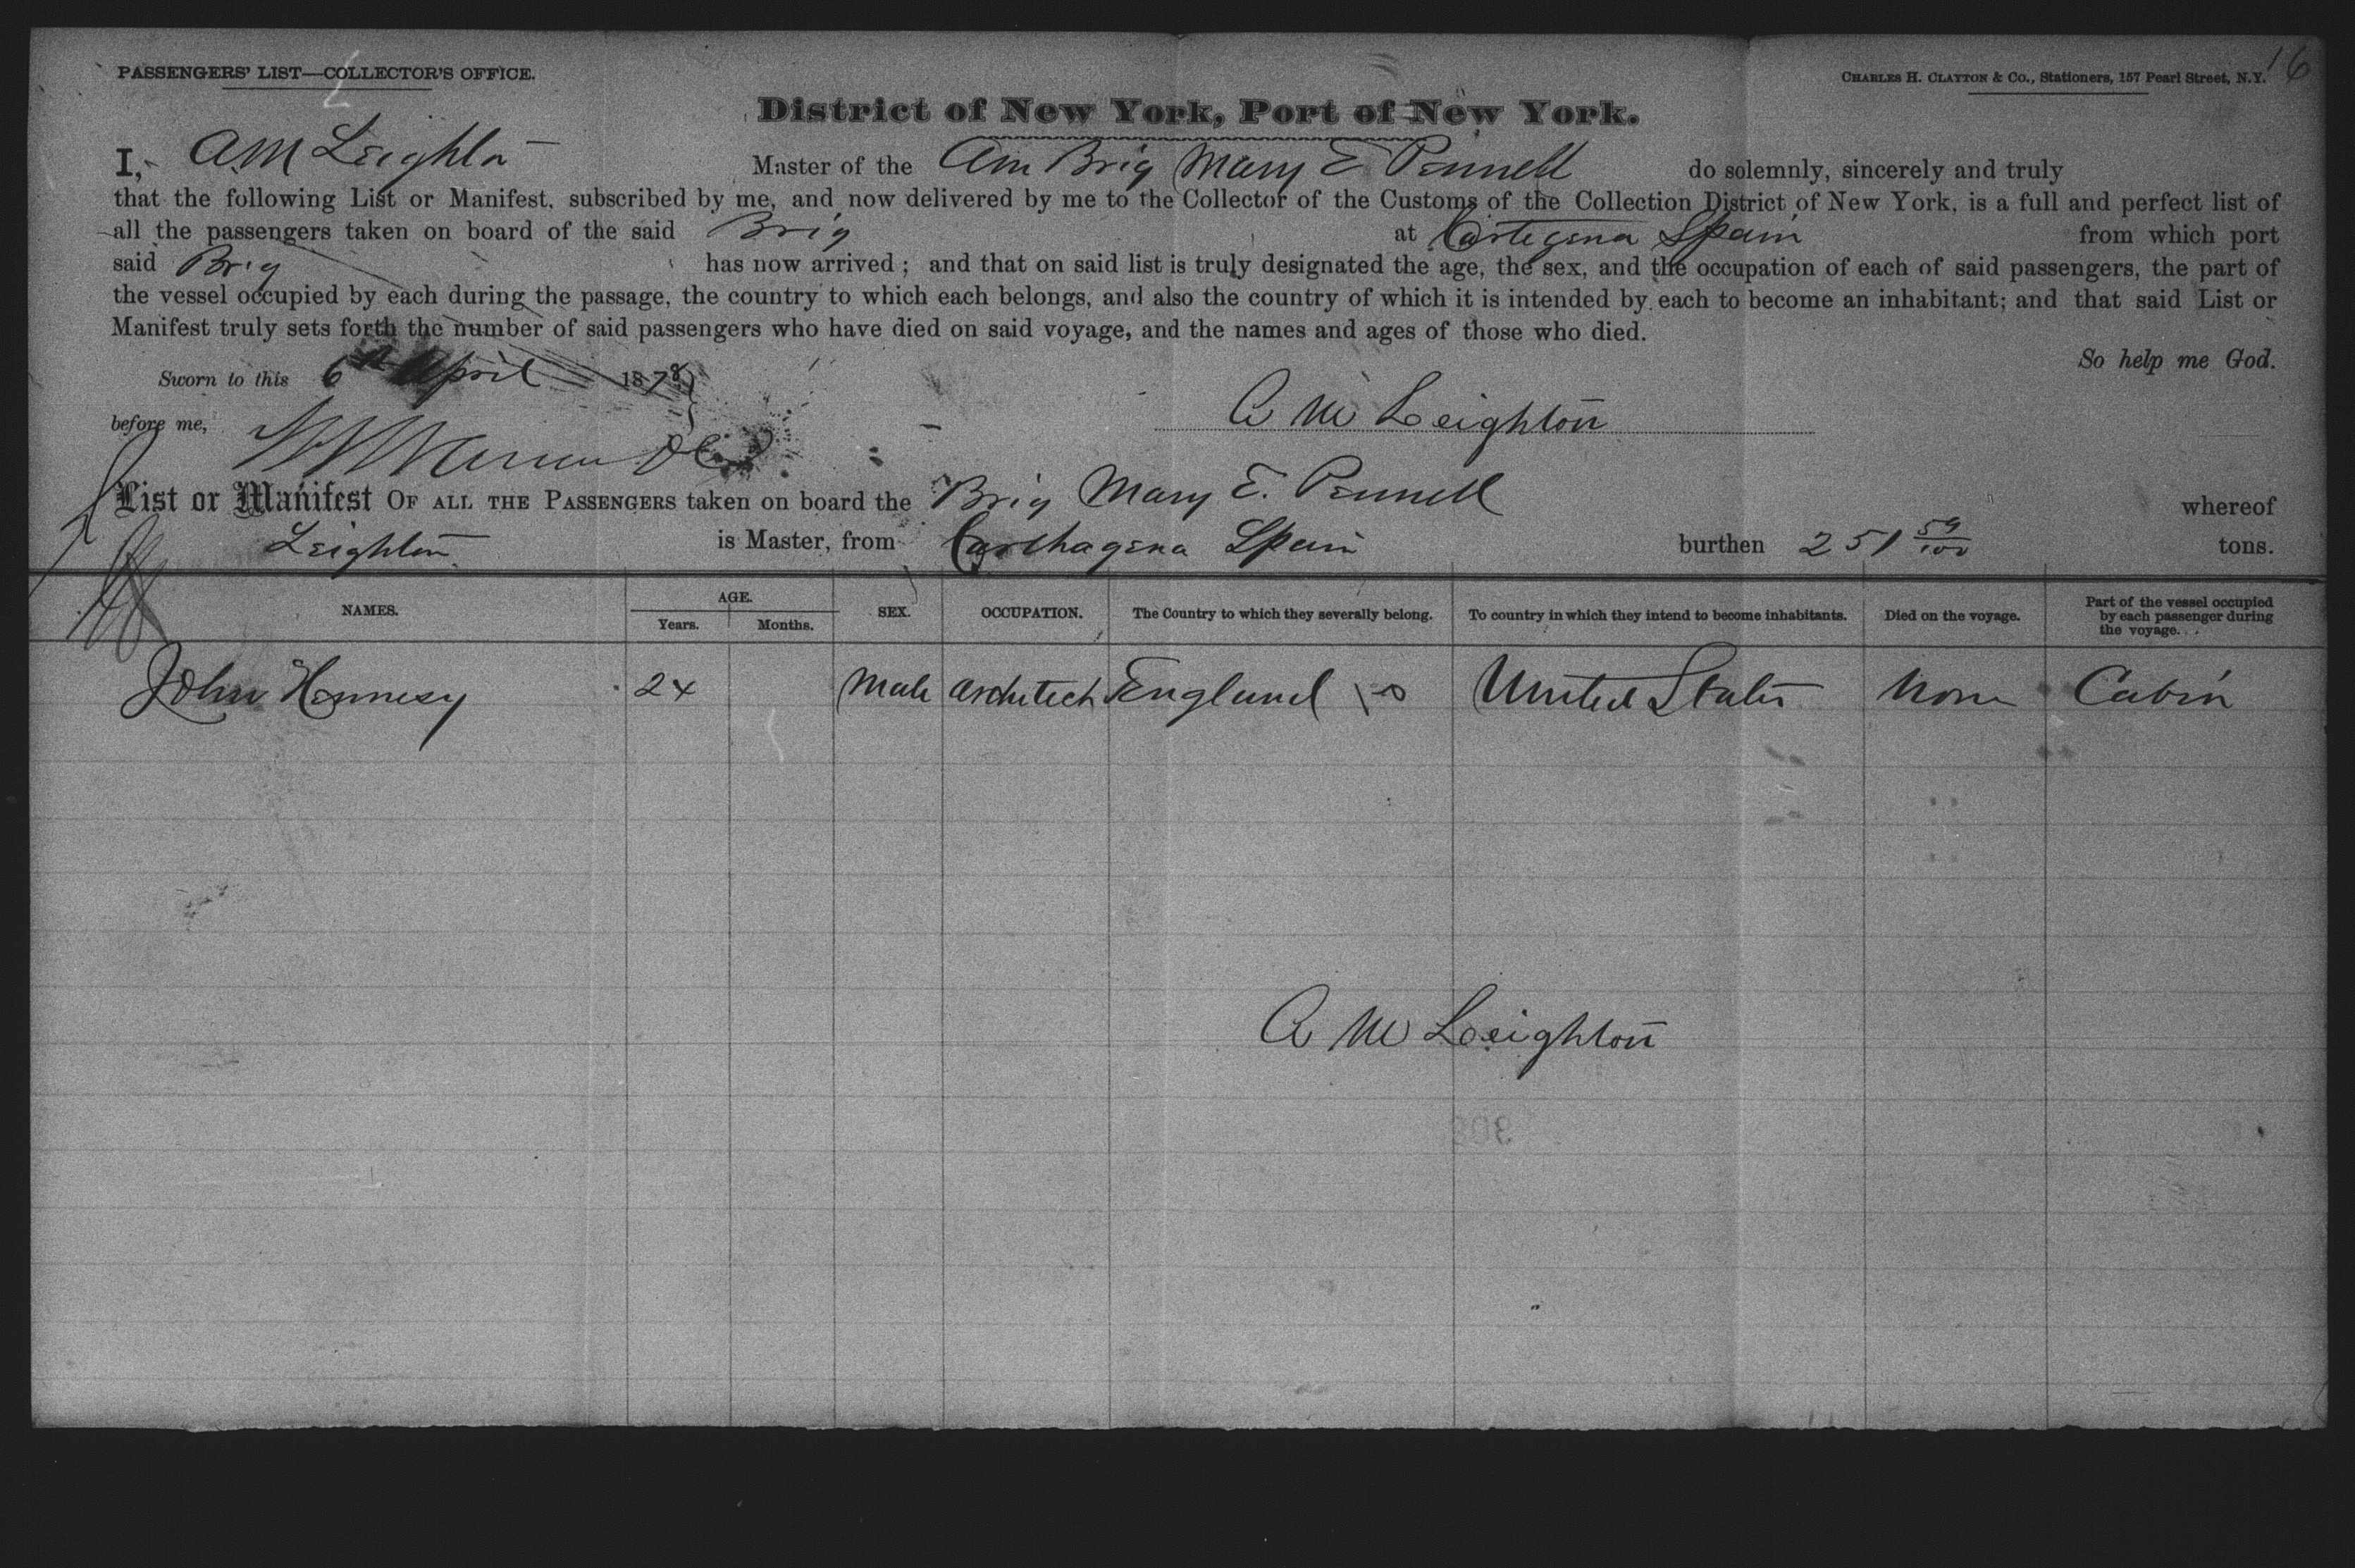 PASSENGERS' LIST—COLLECTOR'S OFFICE.
CHARLES H. CLAYTON & Co., Stationers, 157 Pearl Street, N.Y.
16
District of New York, Port of New York.
I, A M Leighton Master of the Am Brig Mary E Pennell do solemnly, sincerely and truly
that the following List or Manifest, subscribed by me, and now delivered by me to the Collector of the Customs of the Collection District of New York, is a full and perfect list of
all the passengers taken on board of the said Brig at Cartegena Spain from which port
said Brig has now arrived; and that on said list is truly designated the age, the sex, and the occupation of each of said passengers, the part of
the vessel occupied by each during the passage, the country to which each belongs, and also the country of which it is intended by each to become an inhabitant; and that said List or
Manifest truly sets forth the number of said passengers who have died on said voyage, and the names and ages of those who died.
So help me God.
Sworn to this 6th April 1878
before me,
A M Leighton
List or Manifest OF ALL THE PASSENGERS taken on board the Brig Mary E. Pennell whereof
Leighton is Master, from Carthagena Spain burthen 251 59/100 tons.
NAMES. AGE. Years. Months. SEX. OCCUPATION. The Country to which they severally belong. To country in which they intend to become inhabitants. Died on the voyage. Part of the vessel occupied by each passenger during the voyage.
John Hennesy 24 Male Architech England United States None Cabin
A M Leighton